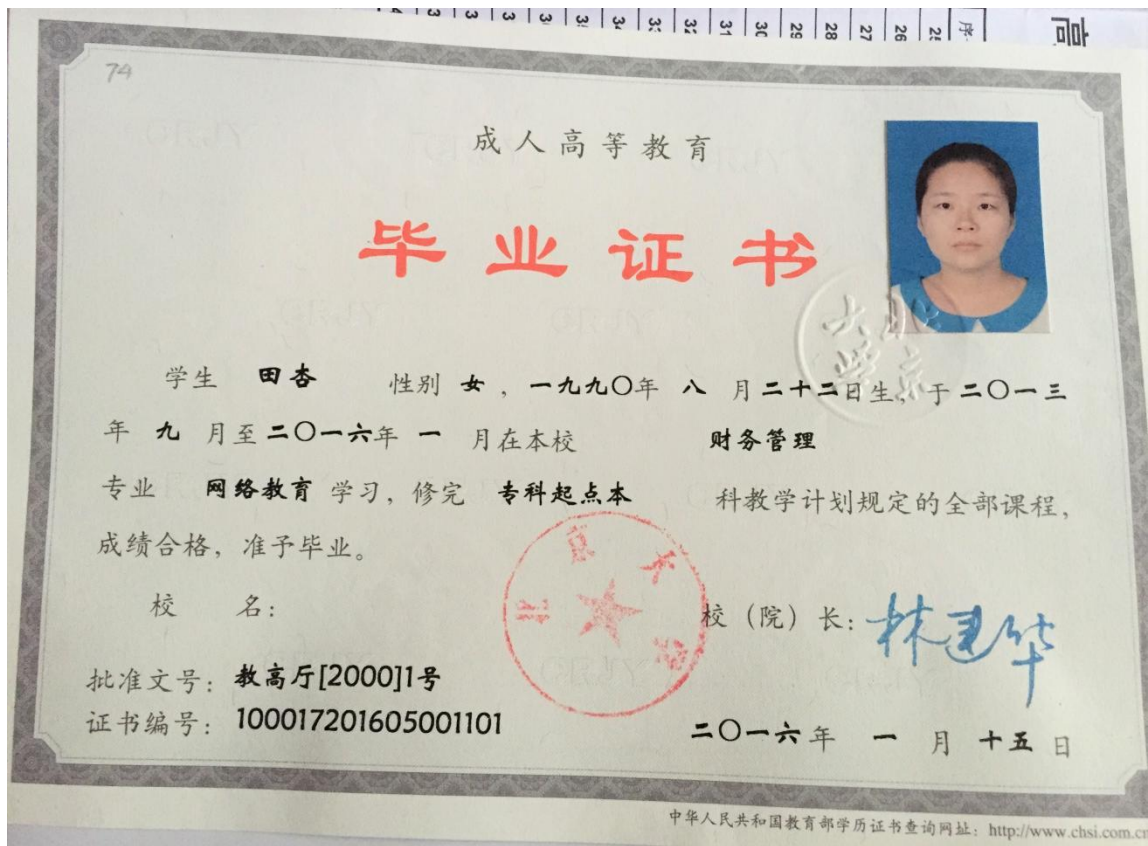 序
25
26
27
28
29
30
31
32
33
34
74
成人高等教育
毕业证书
学生 田杏 性别 女，一九九〇年 八 月二十二日生，于二〇一三
年 九 月至二〇一六年 一 月在本校 财务管理
专业 网络教育 学习，修完 专科起点本 科教学计划规定的全部课程，
成绩合格，准予毕业。
北京大学
北京大学
校 名： 校（院）长：林建华
批准文号：教高厅[2000]1号
证书编号：100017201605001101
二〇一六年 一 月 十五 日
中华人民共和国教育部学历证书查询网址：http://www.chsi.com.cn